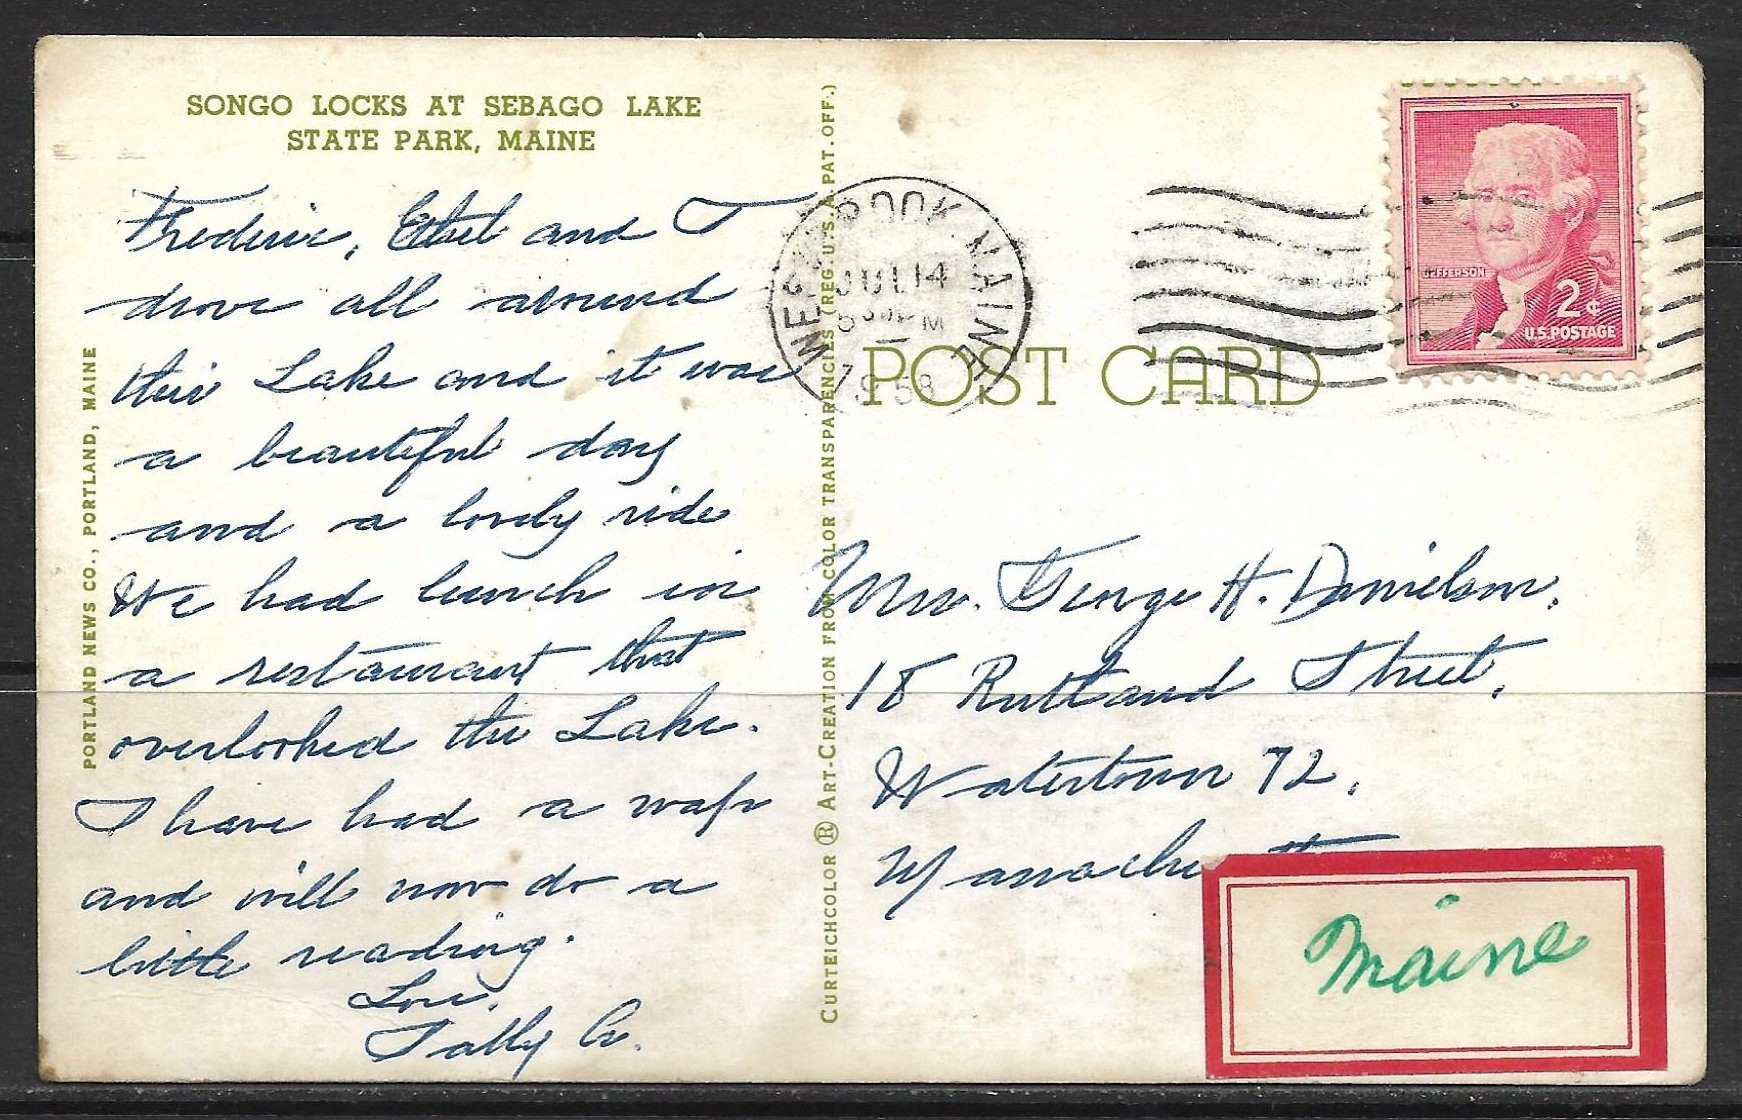 SONGO LOCKS AT SEBAGO LAKE
STATE PARK, MAINE
Frederic, Ethel and I
drove all around
their Lake and it was
a beautiful day
and a lovely ride
We had lunch in
a restaurant that
overlooked the Lake.
I have had a nap
and will now do a
little reading.
Love,
Sally A.
PORTLAND NEWS CO., PORTLAND, MAINE
CURTEICHCOLOR ® ART-CREATION FROM COLOR TRANSPARENCIES (REG. U.S.A. PAT. OFF.)
WESTBROOK MAINE
JUL 14
PM
1958
JEFFERSON
2¢
U.S. POSTAGE
POST CARD
Mrs. George H. Danielson,
18 Rutland Street,
Watertown 72,
Maine